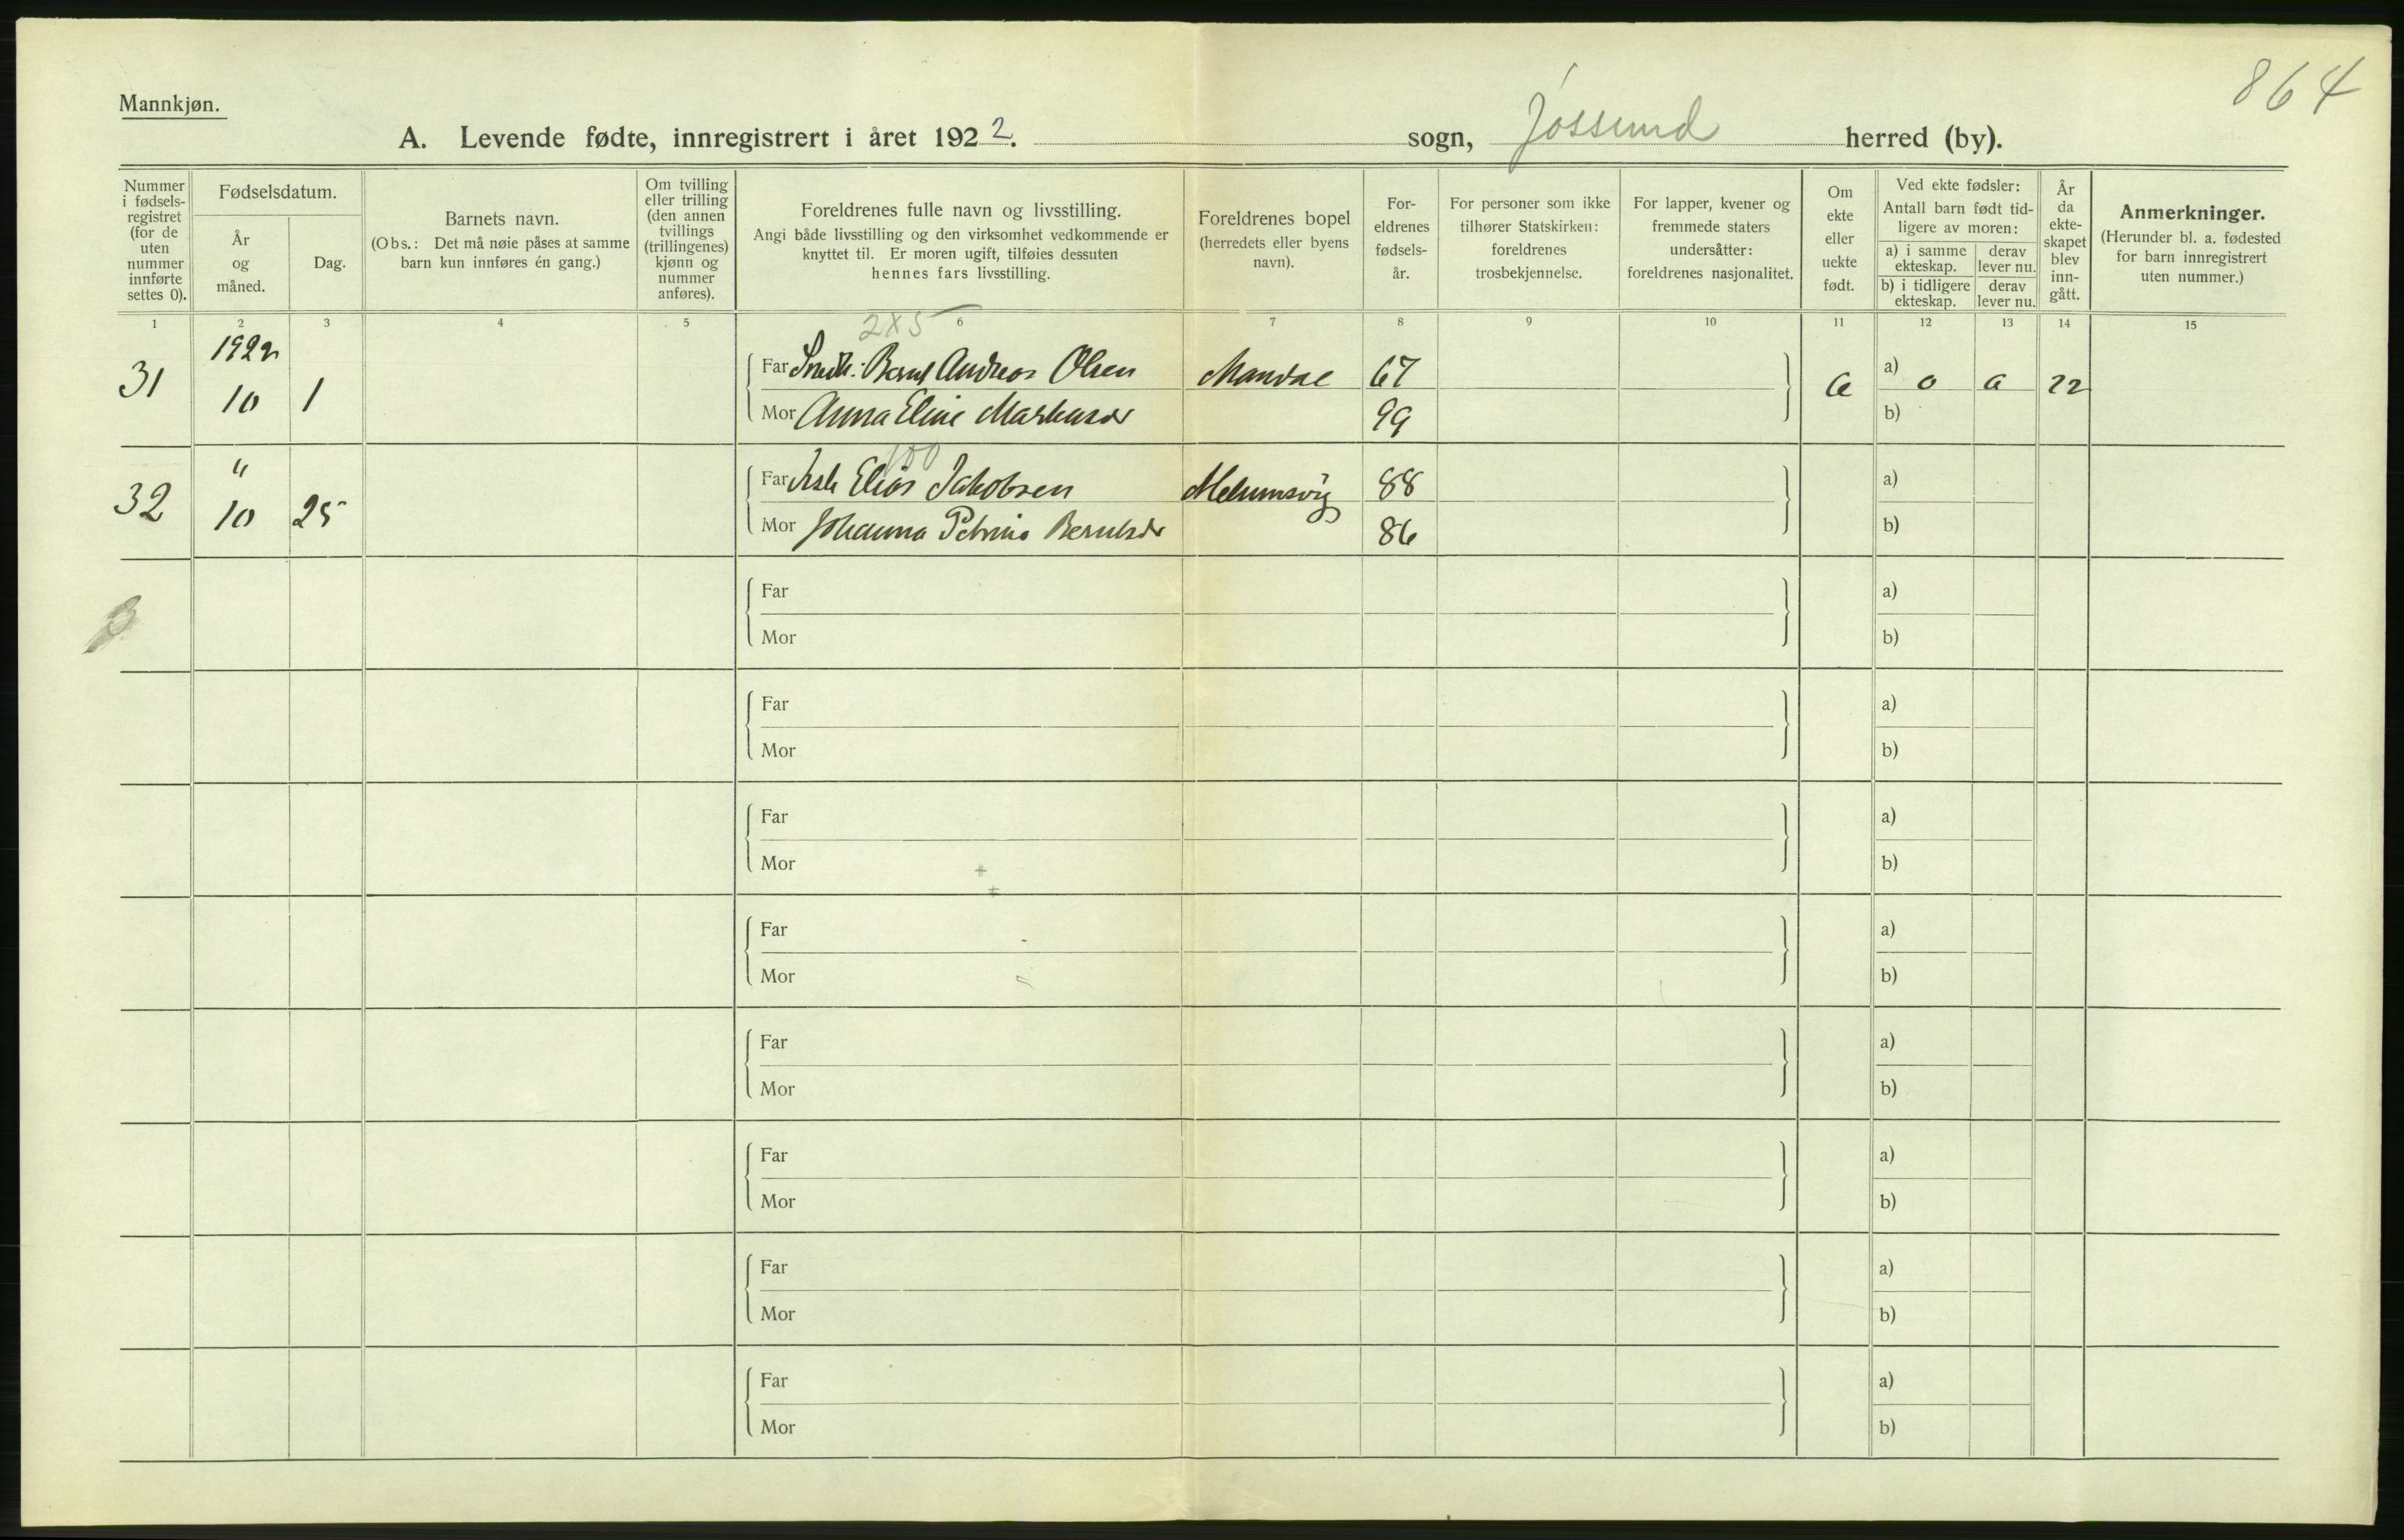 864
Mannkjøn.
A. Levende fødte, innregistrert i året 1922. sogn, Jøssund herred (by).
Nummer i fødsels-registret (for de uten nummer innførte settes 0).
Fødselsdatum.
År og måned.
Dag.
Barnets navn.
(Obs.: Det må nøie påses at samme barn kun innføres én gang.)
Om tvilling eller trilling (den annen tvillings (trillingenes) kjønn og nummer anføres).
Foreldrenes fulle navn og livsstilling.
Angi både livsstilling og den virksomhet vedkommende er knyttet til. Er moren ugift, tilføies dessuten hennes fars livsstilling.
Foreldrenes bopel (herredets eller byens navn).
For-eldrenes fødsels-år.
For personer som ikke tilhører Statskirken: foreldrenes trosbekjennelse.
For lapper, kvener og fremmede staters undersåtter: foreldrenes nasjonalitet.
Om ekte eller uekte født.
Ved ekte fødsler: Antall barn født tid-ligere av moren:
a) i samme ekteskap. derav lever nu.
b) i tidligere ekteskap. derav lever nu.
År da ekte-skapet blev inn-gått.
Anmerkninger.
(Herunder bl. a. fødested for barn innregistrert uten nummer.)
1 2 3 4 5 6 7 8 9 10 11 12 13 14 15
2x5
1922
31 10 1 Far Bernt Andreas Olsen Mandal 67 a) 0 22
Mor Anna Eline 99 b)
100
"
32 10 25 Far Elias Jakobsen 88 a)
Mor Johanna 86 b)
Far a)
Mor b)
Far a)
Mor b)
Far a)
Mor b)
Far a)
Mor b)
Far a)
Mor b)
Far a)
Mor b)
Far a)
Mor b)
Far a)
Mor b)